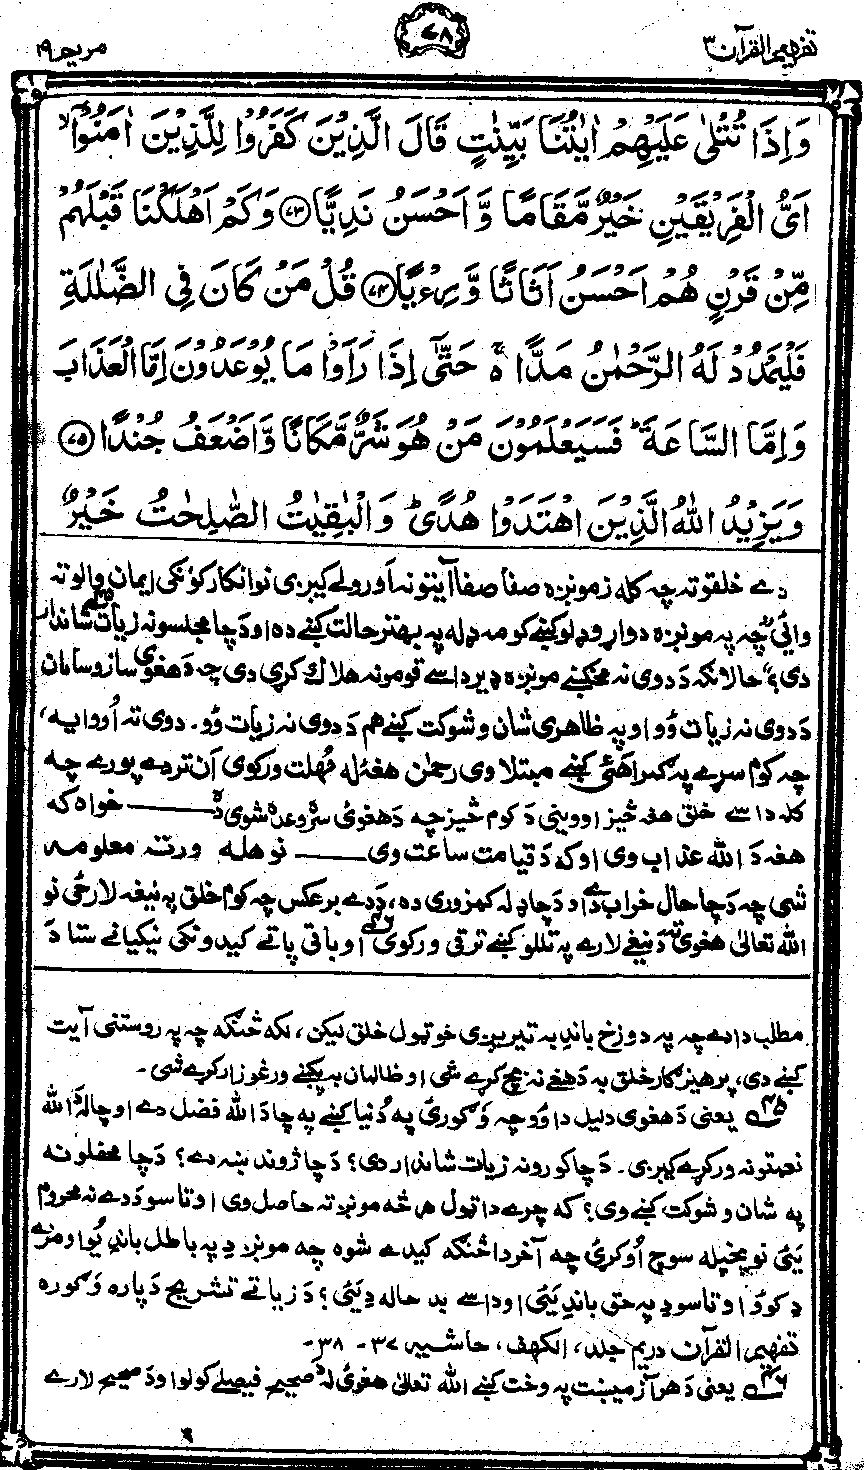 تفهيم القرآن ۳
۷۸
مريم ۱۹
وَاِذَا تُتْلٰى عَلَيْهِمْ اٰيٰتُنَا بَيِّنٰتٍ قَالَ الَّذِيْنَ كَفَرُوْا لِلَّذِيْنَ اٰمَنُوْٓا ۙ
اَىُّ الْفَرِيْقَيْنِ خَيْرٌ مَّقَامًا وَّاَحْسَنُ نَدِيًّا ﴿۷۳﴾ وَكَمْ اَهْلَكْنَا قَبْلَهُمْ
مِّنْ قَرْنٍ هُمْ اَحْسَنُ اَثَاثًا وَّرِءْيًا ﴿۷۴﴾ قُلْ مَنْ كَانَ فِى الضَّلٰلَةِ
فَلْيَمْدُدْ لَهُ الرَّحْمٰنُ مَدًّا ەۚ حَتّٰٓى اِذَا رَاَوْا مَا يُوْعَدُوْنَ اِمَّا الْعَذَابَ
وَاِمَّا السَّاعَةَ ؕ فَسَيَعْلَمُوْنَ مَنْ هُوَ شَرٌّ مَّكَانًا وَّاَضْعَفُ جُنْدًا ﴿۷۵﴾
وَيَزِيْدُ اللّٰهُ الَّذِيْنَ اهْتَدَوْا هُدًى ؕ وَالْبٰقِيٰتُ الصّٰلِحٰتُ خَيْرٌ
دے خلقو ته چه كله زمونږه صفا صفا آيتونه اَورولے كيږی نو انكار كوُنكی ايمان والو ته
وائی چه په مونږه دواړو ډلو كښے كومه ډله په بهتر حالت كښے ده او دَ چا مجلسونه زيات شاندار
دی؟ ۴۵ حالانكه دَ دوی نه مخكښے مونږه ډير داسے قومونه هلاك كړی دی چه دَ هغوی ساز و سامان
دَ دوی نه زيات وُو او په ظاهری شان و شوكت كښے هم دَ دوی نه زيات وُو. دوی ته اُووايه،
چه كوم سړے په گمراهئی كښے مبتلا وی رحمٰن هغهٔ له مُهلت وركوی اَن تر دے پورے چه
كله داسے خلق هغه څيز اووينی دَ كوم څيز چه دَ هغوی سره وعده شوی ده ــــ خواه كه
هغه دَ الله عذاب وی او كه دَ قيامت ساعت وی ــــ نو هله ورته معلومه
شی چه دَ چا حال خراب دے او دَ چا ډله كمزوری ده، دَ دے برعكس چه كوم خلق په نيغه لار ځی نو
الله تعالیٰ هغوی ته دَ نيغے لارے په تللو كښے ترقی وركوی ۴۶ او باقی پاتے كيدونكی نيكيانے ستا دَ
مطلب دا دے چه په دوزخ باندِ به تيريږی خو ټول خلق ليكن، لكه څنگه چه په روستنی آيت
كښے دی، پرهيزگار خلق به دَ هغے نه بچ كړے شی او ظالمان به پكښے ورغوزار كړے شی۔
۴۵ يعنی دَ هغوی دليل دا وُو چه وَگورئ په دُنيا كښے په چا دَ الله فضل دے او چا له دَ الله
نعمتونه وركړے كيږی. دَ چا كورونه زيات شاندار دی؟ دَ چا ژوند ښه دے؟ دَ چا محفلونه
په شان و شوكت كښے وی؟ كه چرے دا ټول هر څه مونږ ته حاصل وی او تاسو دَ دے نه محروم
يئ نو پخپله سوچ اُوكړئ چه آخر دا څنگه كيدے شوه چه مونږ دِ په باطل باندِ يُو او مزے
دِ كوُو او تاسو دِ په حق باندِ يئ او داسے بد حاله دِ يئ؟ دَ زياتے تشريح دَپاره وَگوره
تفهيم القرآن دريم جلد، الكهف، حاشيه ۳۷ - ۳۸ -
۴۶ يعنی دَ هر آزميښت په وخت كښے الله تعالیٰ هغوی له دَ صحيح فيصلے كولو او دَ صحيح لارے